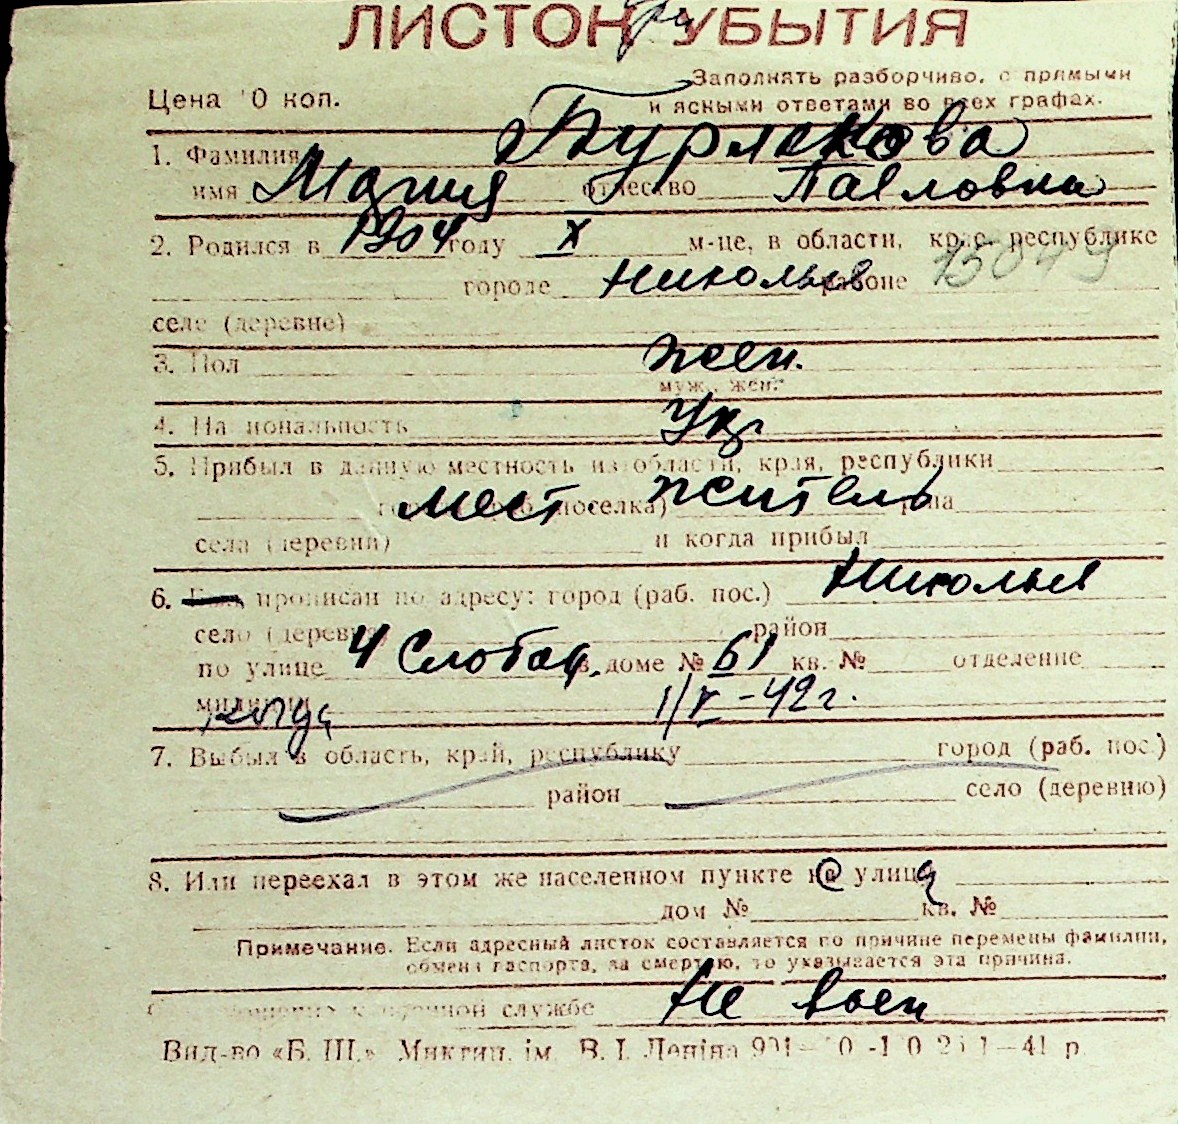 ЛИСТОК УБЫТИЯ
Заполнять разборчиво, с прямыми
Цена 10 коп.
и ясными ответами во всех графах.
1. Фамилия Бурлакова
имя Мария отчество Павловна
2. Родился в 1904 году X м-це, в области, крае, республике
городе Николаев районе 15049
селе (деревне)
3. Пол жен.
муж., жен.
4. Национальность Укр
5. Прибыл в данную местность из области, края, республики
мест житель
села (деревни) и когда прибыл
6. прописан по адресу: город (раб. пос.) Николаев
село (деревня) район
по улице 4 Слобод. в доме № 61 кв. № отделение
милиции когда 1/V-42 г.
7. Выбыл в область, край, республику город (раб. пос.)
район село (деревню)
8. Или переехал в этом же населенном пункте на улицу
дом № кв. №
Примечание. Если адресный листок составляется по причине перемены фамилии,
обмена паспорта, за смертью, то указывается эта причина.
военной службе Не воен
Вид-во «Б. Ш.» Миктип. ім. В. І. Леніна 41 р.